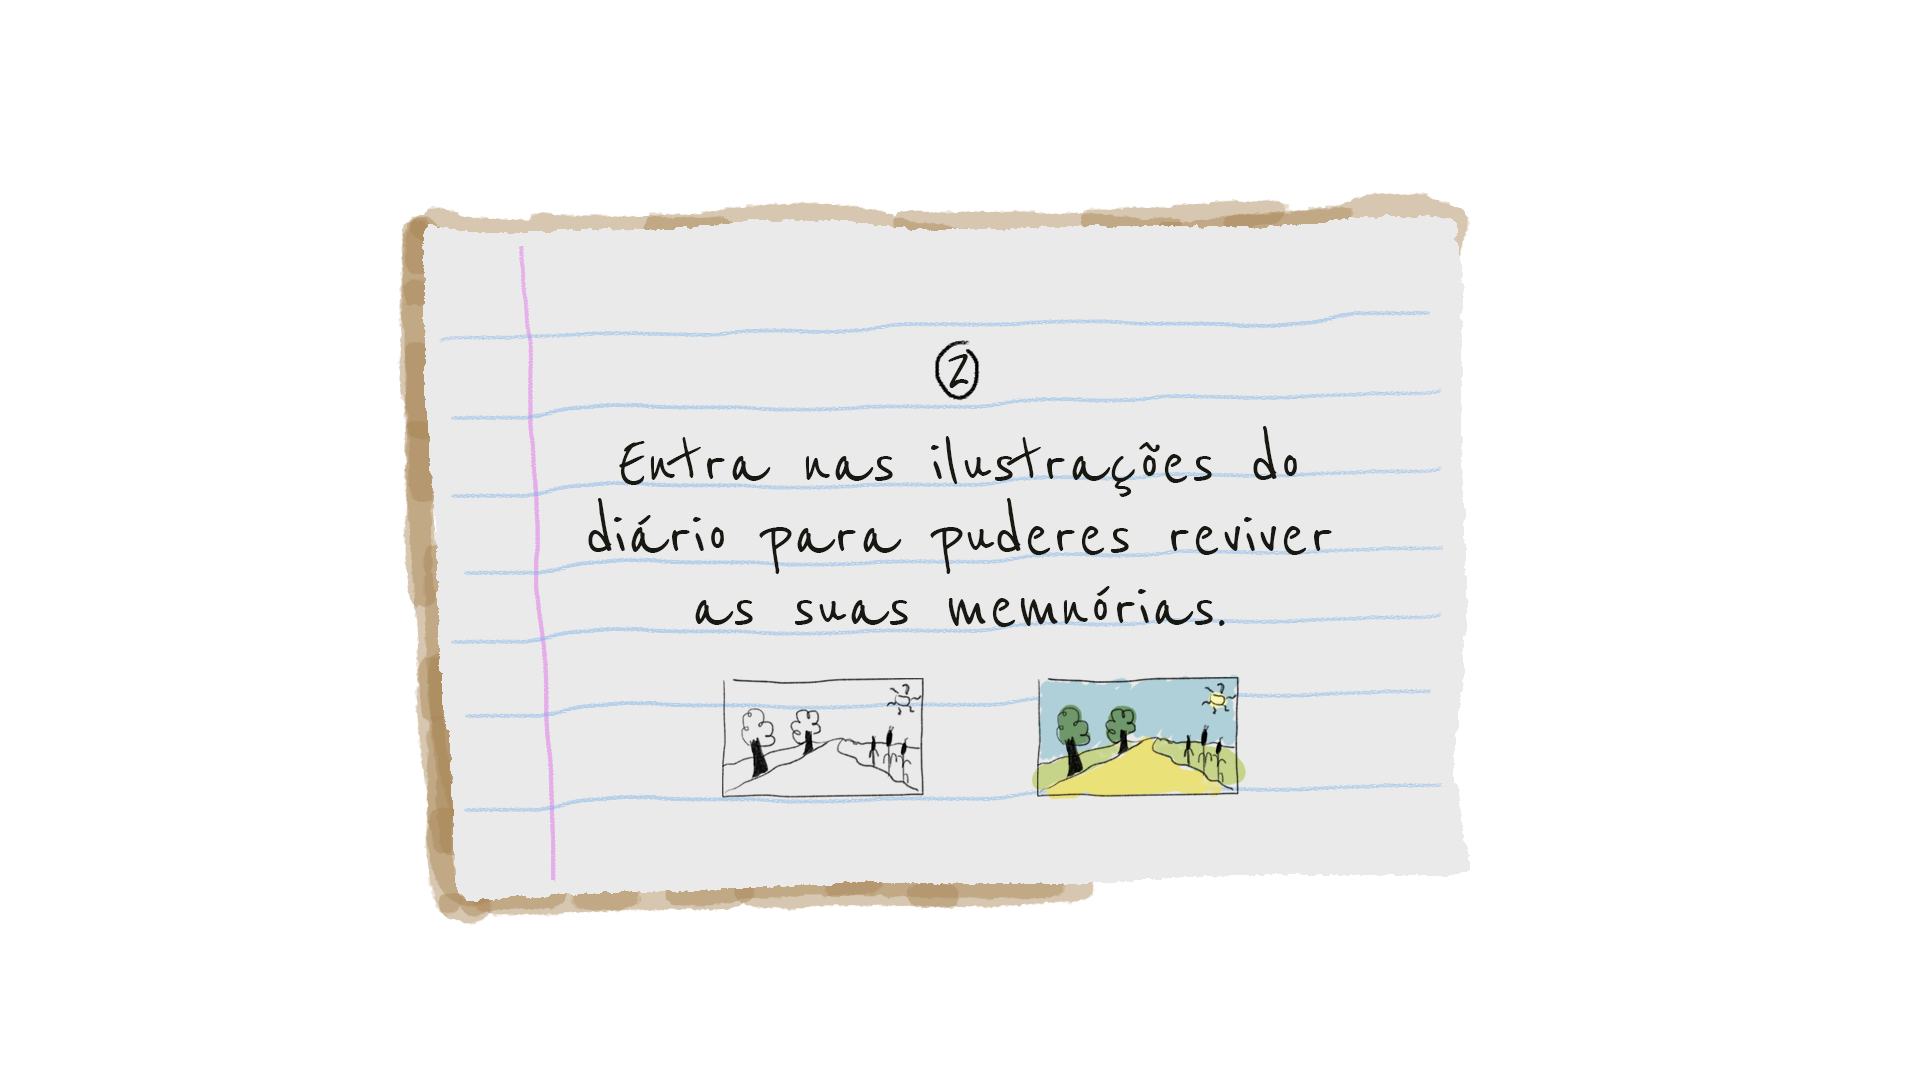 2
Entra nas ilustrações do
diário para puderes reviver
as suas memnórias.